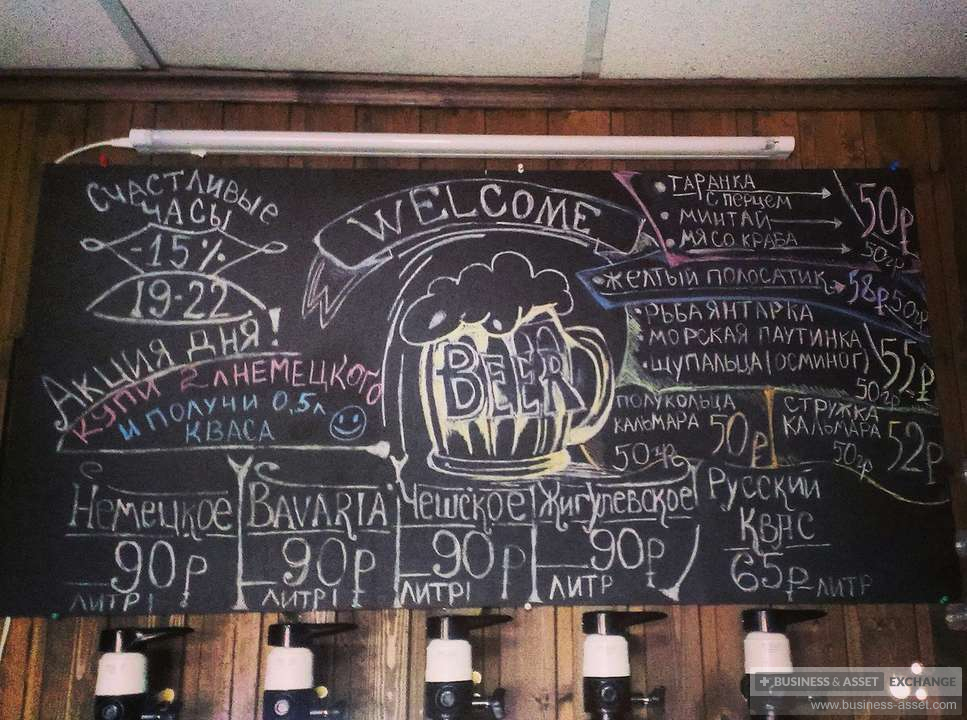 СЧАСТЛИВЫЕ
ЧАСЫ
-15%
19-22
АКЦИЯ ДНЯ!
КУПИ 2 Л НЕМЕЦКОГО
И ПОЛУЧИ 0,5л
КВАСА
WELCOME
BEER
• ТАРАНКА
С ПЕРЦЕМ
• МИНТАЙ
• МЯСО КРАБА
50р
50гр
• ЖЕЛТЫЙ ПОЛОСАТИК 58р 50гр
• РЫБА ЯНТАРКА
• МОРСКАЯ ПАУТИНКА
• ЩУПАЛЬЦА (ОСМИНОГ)
55р
50гр
ПОЛУКОЛЬЦА
КАЛЬМАРА
50р
50гр
СТРУЖКА
КАЛЬМАРА
50гр
52р
НЕМЕЦКОЕ
90р
ЛИТР
BAVARIA
90р
ЛИТР
ЧЕШСКОЕ
90р
ЛИТР
ЖИГУЛЕВСКОЕ
90р
ЛИТР
РУССКИЙ
КВАС
65р ЛИТР
BUSINESS & ASSET EXCHANGE
www.business-asset.com